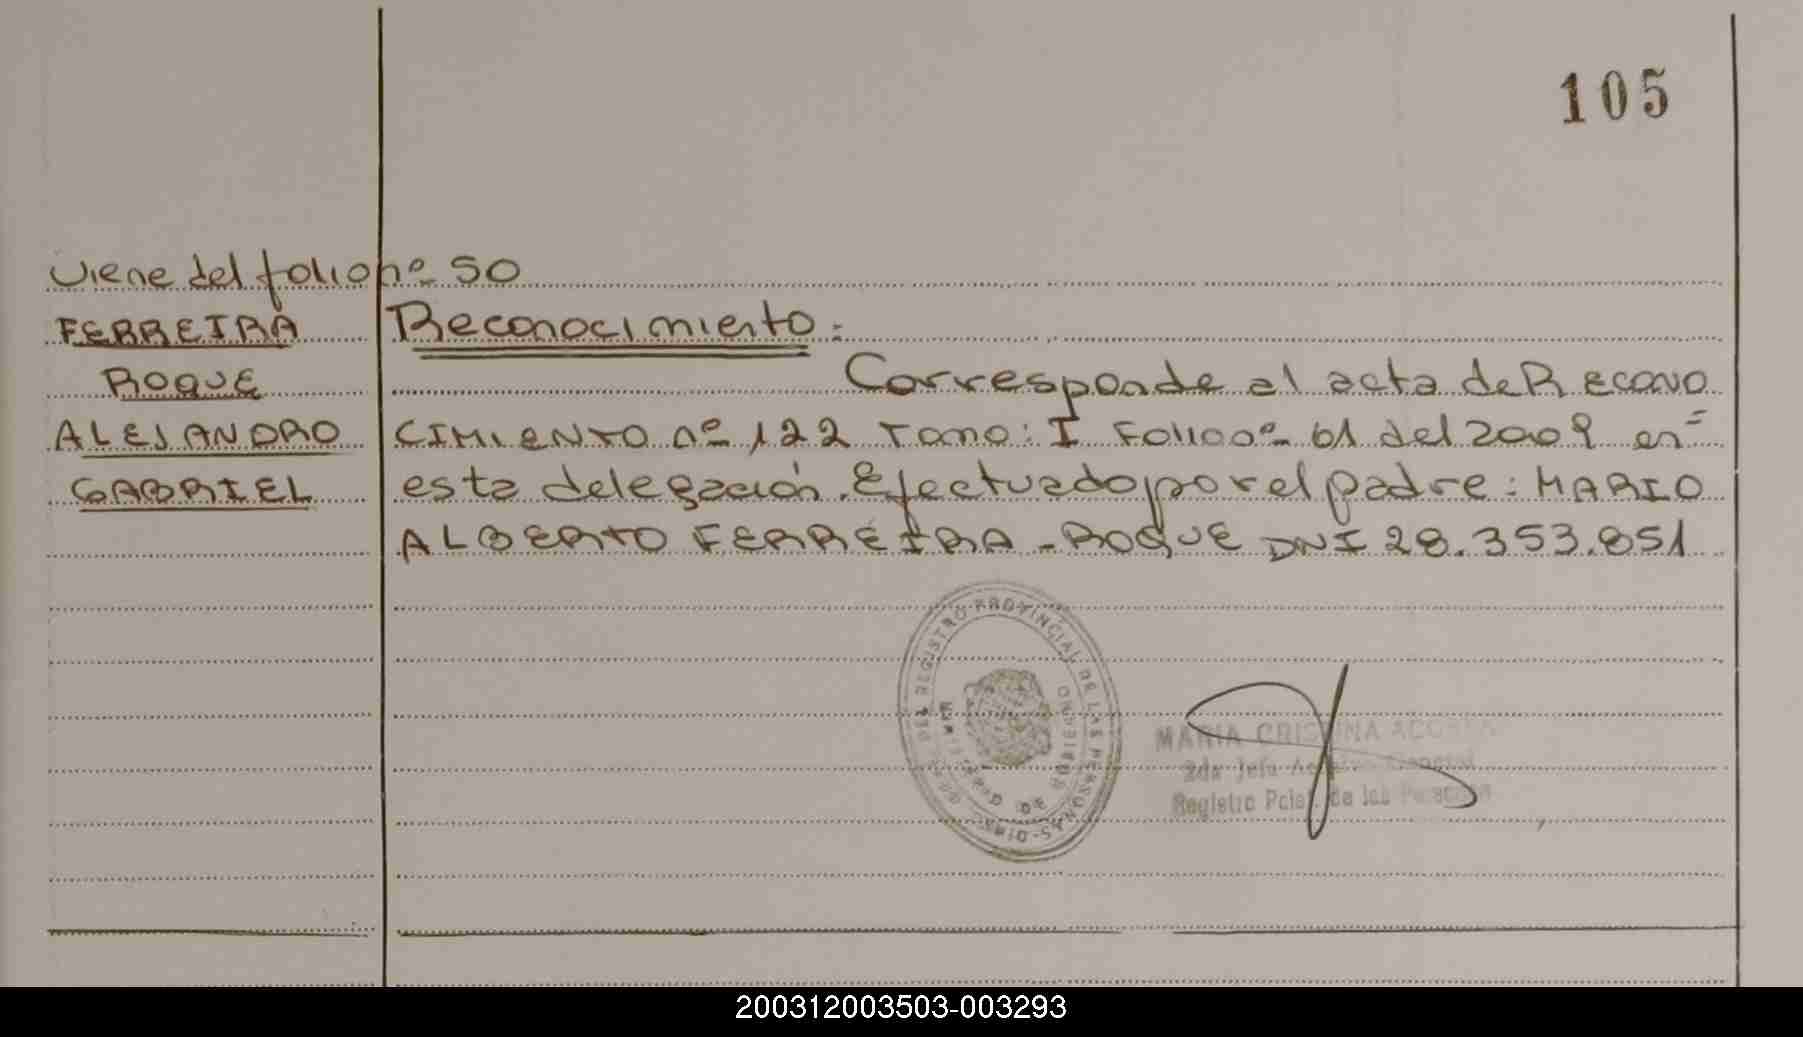 105
Viene del folio nº 50
FERREIRA
ROQUE
ALEJANDRO
GABRIEL
Reconocimiento:
Corresponde al acta de Recono
CIMIENTO nº 122 Tomo: I Folio nº 61 del 2009 en
esta delegación. Efectuado por el padre: MARIO
ALBERTO FERREIRA - ROQUE DNI 28.353.851
REGISTRO PROVINCIAL DE LAS PERSONAS
GOBIERNO
MARIA CRISTINA ACOSTA
2da Jefa General
Registro Pcial. de las Personas
200312003503-003293